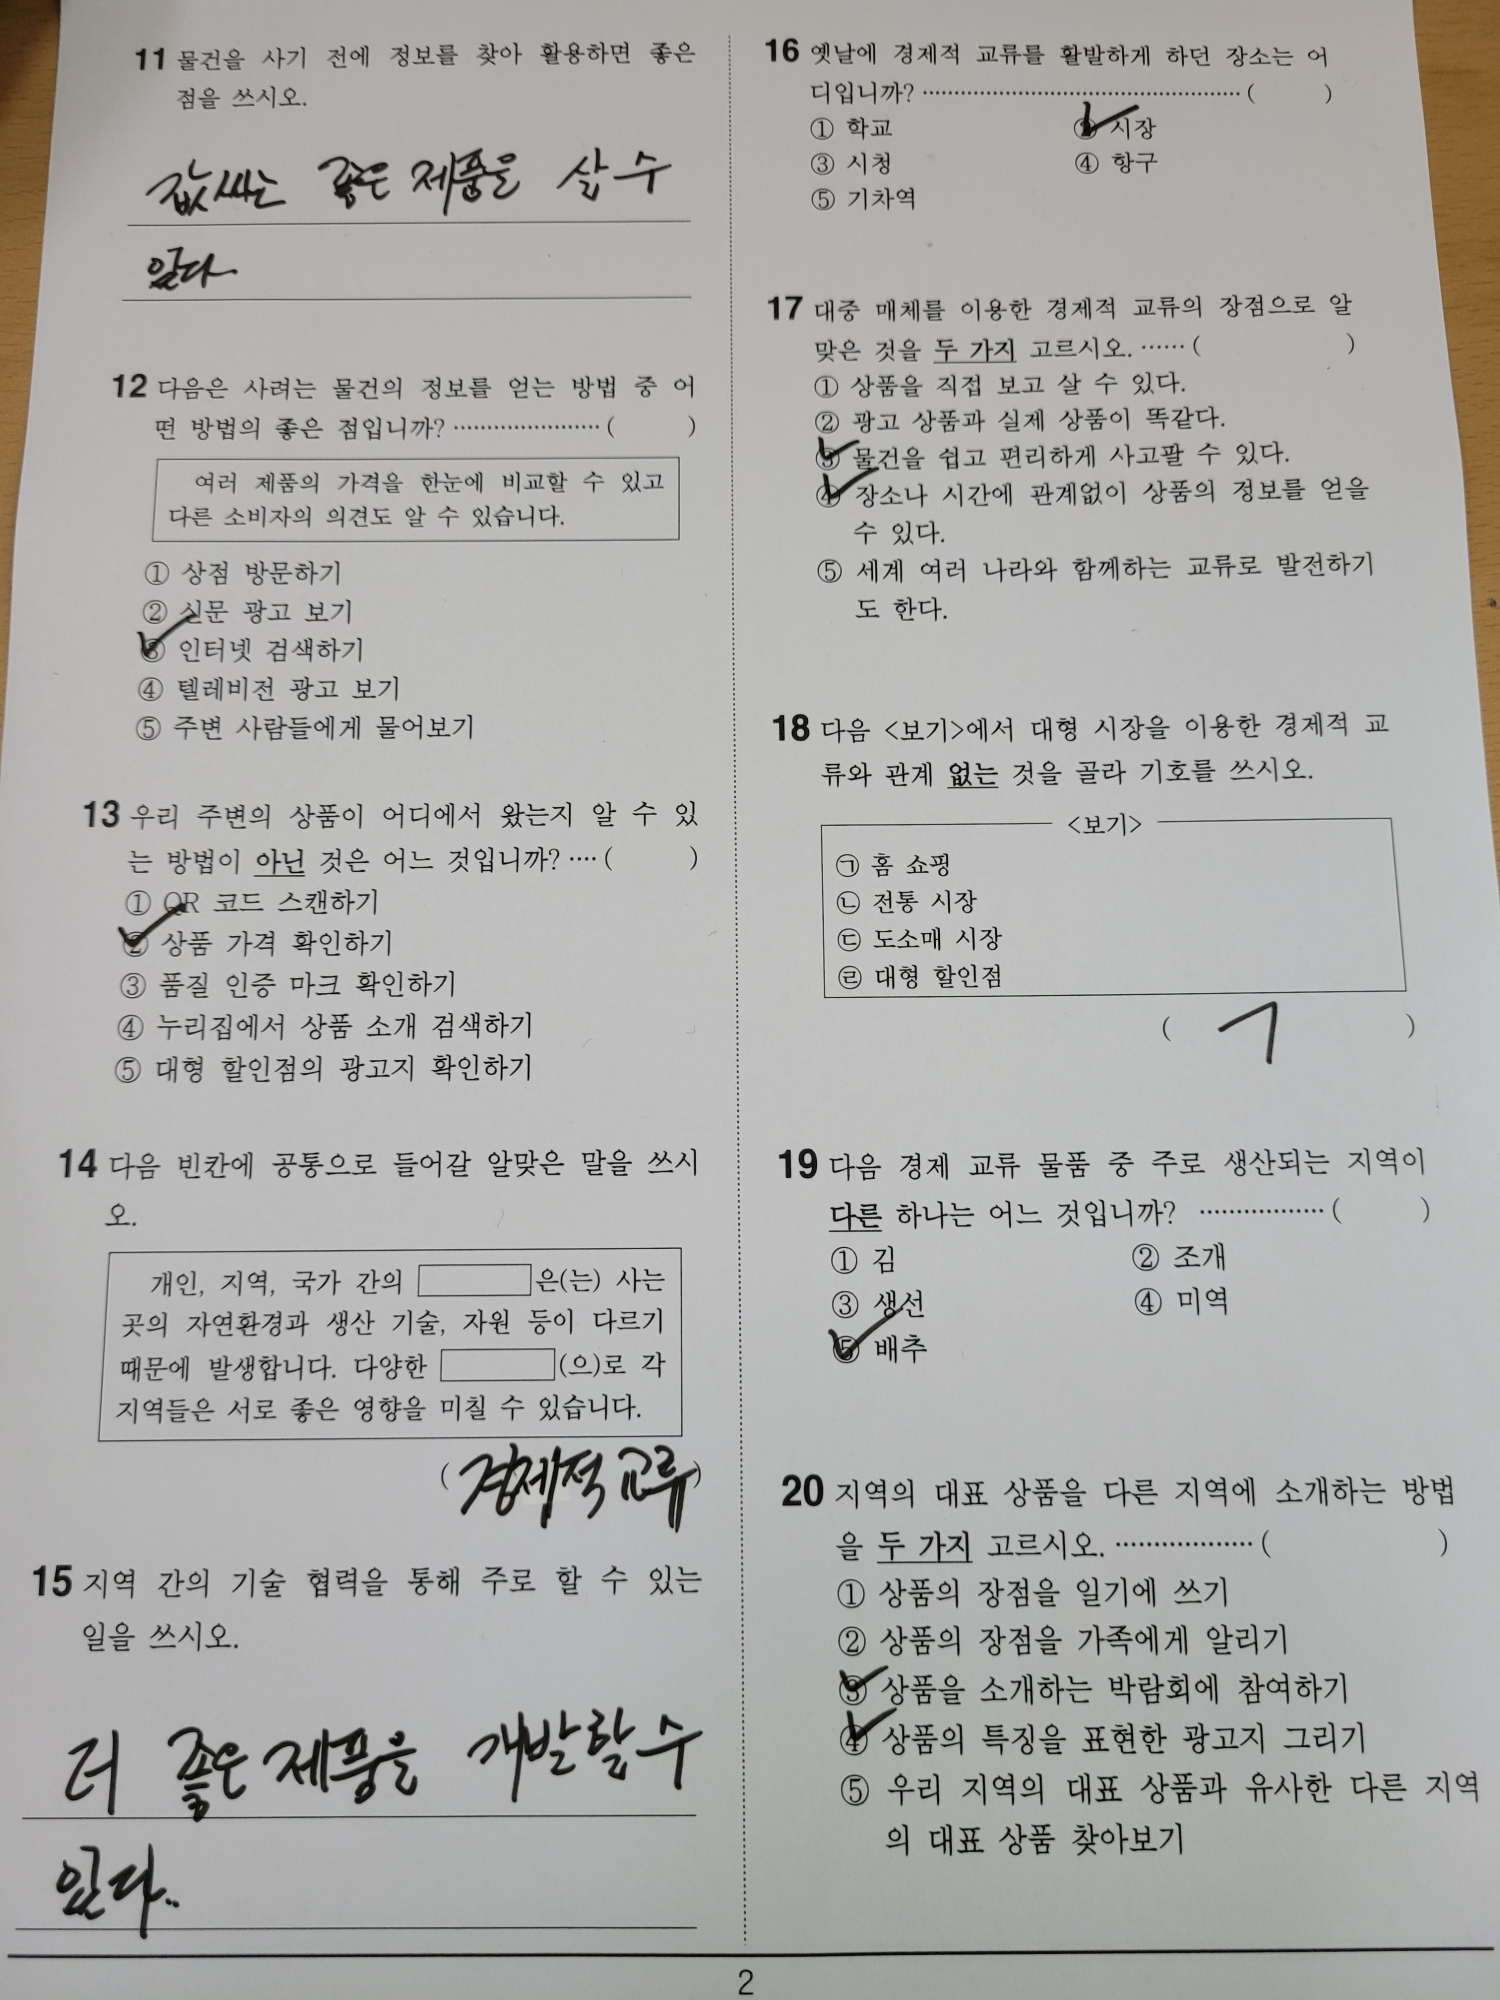 11 물건을 사기 전에 정보를 찾아 활용하면 좋은
점을 쓰시오.
값싸는 좋은 제품을 살 수
있다
12 다음은 사려는 물건의 정보를 얻는 방법 중 어
떤 방법의 좋은 점입니까? ····················· ( )
여러 제품의 가격을 한눈에 비교할 수 있고
다른 소비자의 의견도 알 수 있습니다.
① 상점 방문하기
② 신문 광고 보기
③ 인터넷 검색하기
④ 텔레비전 광고 보기
⑤ 주변 사람들에게 물어보기
13 우리 주변의 상품이 어디에서 왔는지 알 수 있
는 방법이 아닌 것은 어느 것입니까? ···· ( )
① QR 코드 스캔하기
② 상품 가격 확인하기
③ 품질 인증 마크 확인하기
④ 누리집에서 상품 소개 검색하기
⑤ 대형 할인점의 광고지 확인하기
14 다음 빈칸에 공통으로 들어갈 알맞은 말을 쓰시
오.
개인, 지역, 국가 간의 은(는) 사는
곳의 자연환경과 생산 기술, 자원 등이 다르기
때문에 발생합니다. 다양한 (으)로 각
지역들은 서로 좋은 영향을 미칠 수 있습니다.
( 경제적 교류 )
15 지역 간의 기술 협력을 통해 주로 할 수 있는
일을 쓰시오.
더 좋은 제품을 개발할 수
있다..
16 옛날에 경제적 교류를 활발하게 하던 장소는 어
디입니까? ·············································· ( )
① 학교 ② 시장
③ 시청 ④ 항구
⑤ 기차역
17 대중 매체를 이용한 경제적 교류의 장점으로 알
맞은 것을 두 가지 고르시오. ······ ( )
① 상품을 직접 보고 살 수 있다.
② 광고 상품과 실제 상품이 똑같다.
③ 물건을 쉽고 편리하게 사고팔 수 있다.
④ 장소나 시간에 관계없이 상품의 정보를 얻을
수 있다.
⑤ 세계 여러 나라와 함께하는 교류로 발전하기
도 한다.
18 다음 <보기>에서 대형 시장을 이용한 경제적 교
류와 관계 없는 것을 골라 기호를 쓰시오.
<보기>
㉠ 홈 쇼핑
㉡ 전통 시장
㉢ 도소매 시장
㉣ 대형 할인점
( ㄱ )
19 다음 경제 교류 물품 중 주로 생산되는 지역이
다른 하나는 어느 것입니까? ················· ( )
① 김 ② 조개
③ 생선 ④ 미역
⑤ 배추
20 지역의 대표 상품을 다른 지역에 소개하는 방법
을 두 가지 고르시오. ·················· ( )
① 상품의 장점을 일기에 쓰기
② 상품의 장점을 가족에게 알리기
③ 상품을 소개하는 박람회에 참여하기
④ 상품의 특징을 표현한 광고지 그리기
⑤ 우리 지역의 대표 상품과 유사한 다른 지역
의 대표 상품 찾아보기
2